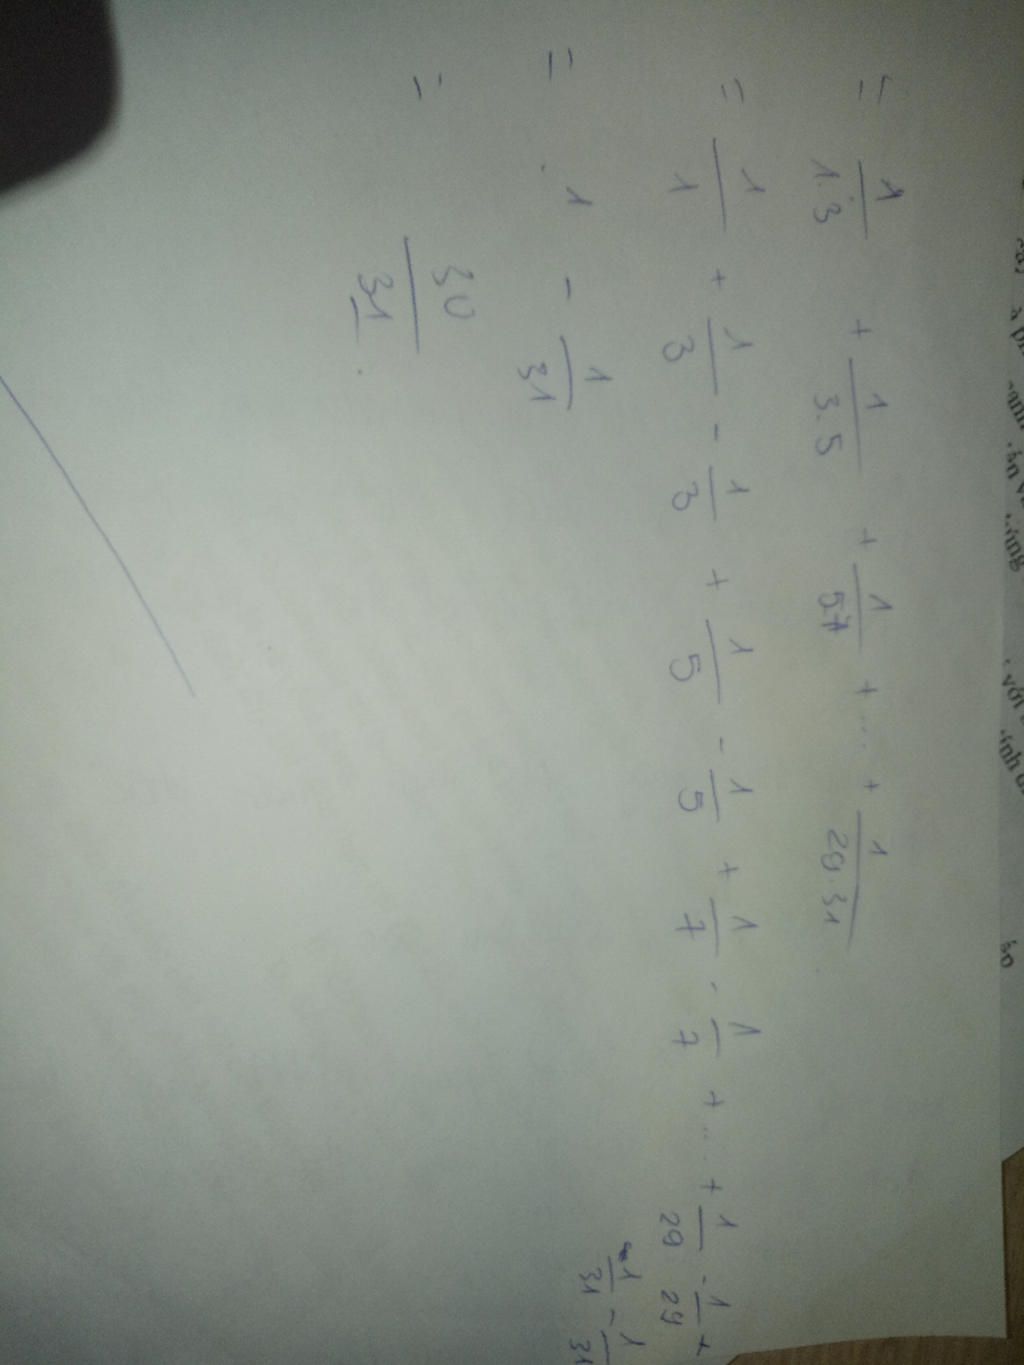 = 1/1.3 + 1/3.5 + 1/5.7 + ... + 1/29.31
= 1/1 + 1/3 - 1/3 + 1/5 - 1/5 + 1/7 - 1/7 + ... + 1/29 - 1/29 +
1/31 - 1/31
= 1 - 1/31
= 30/31